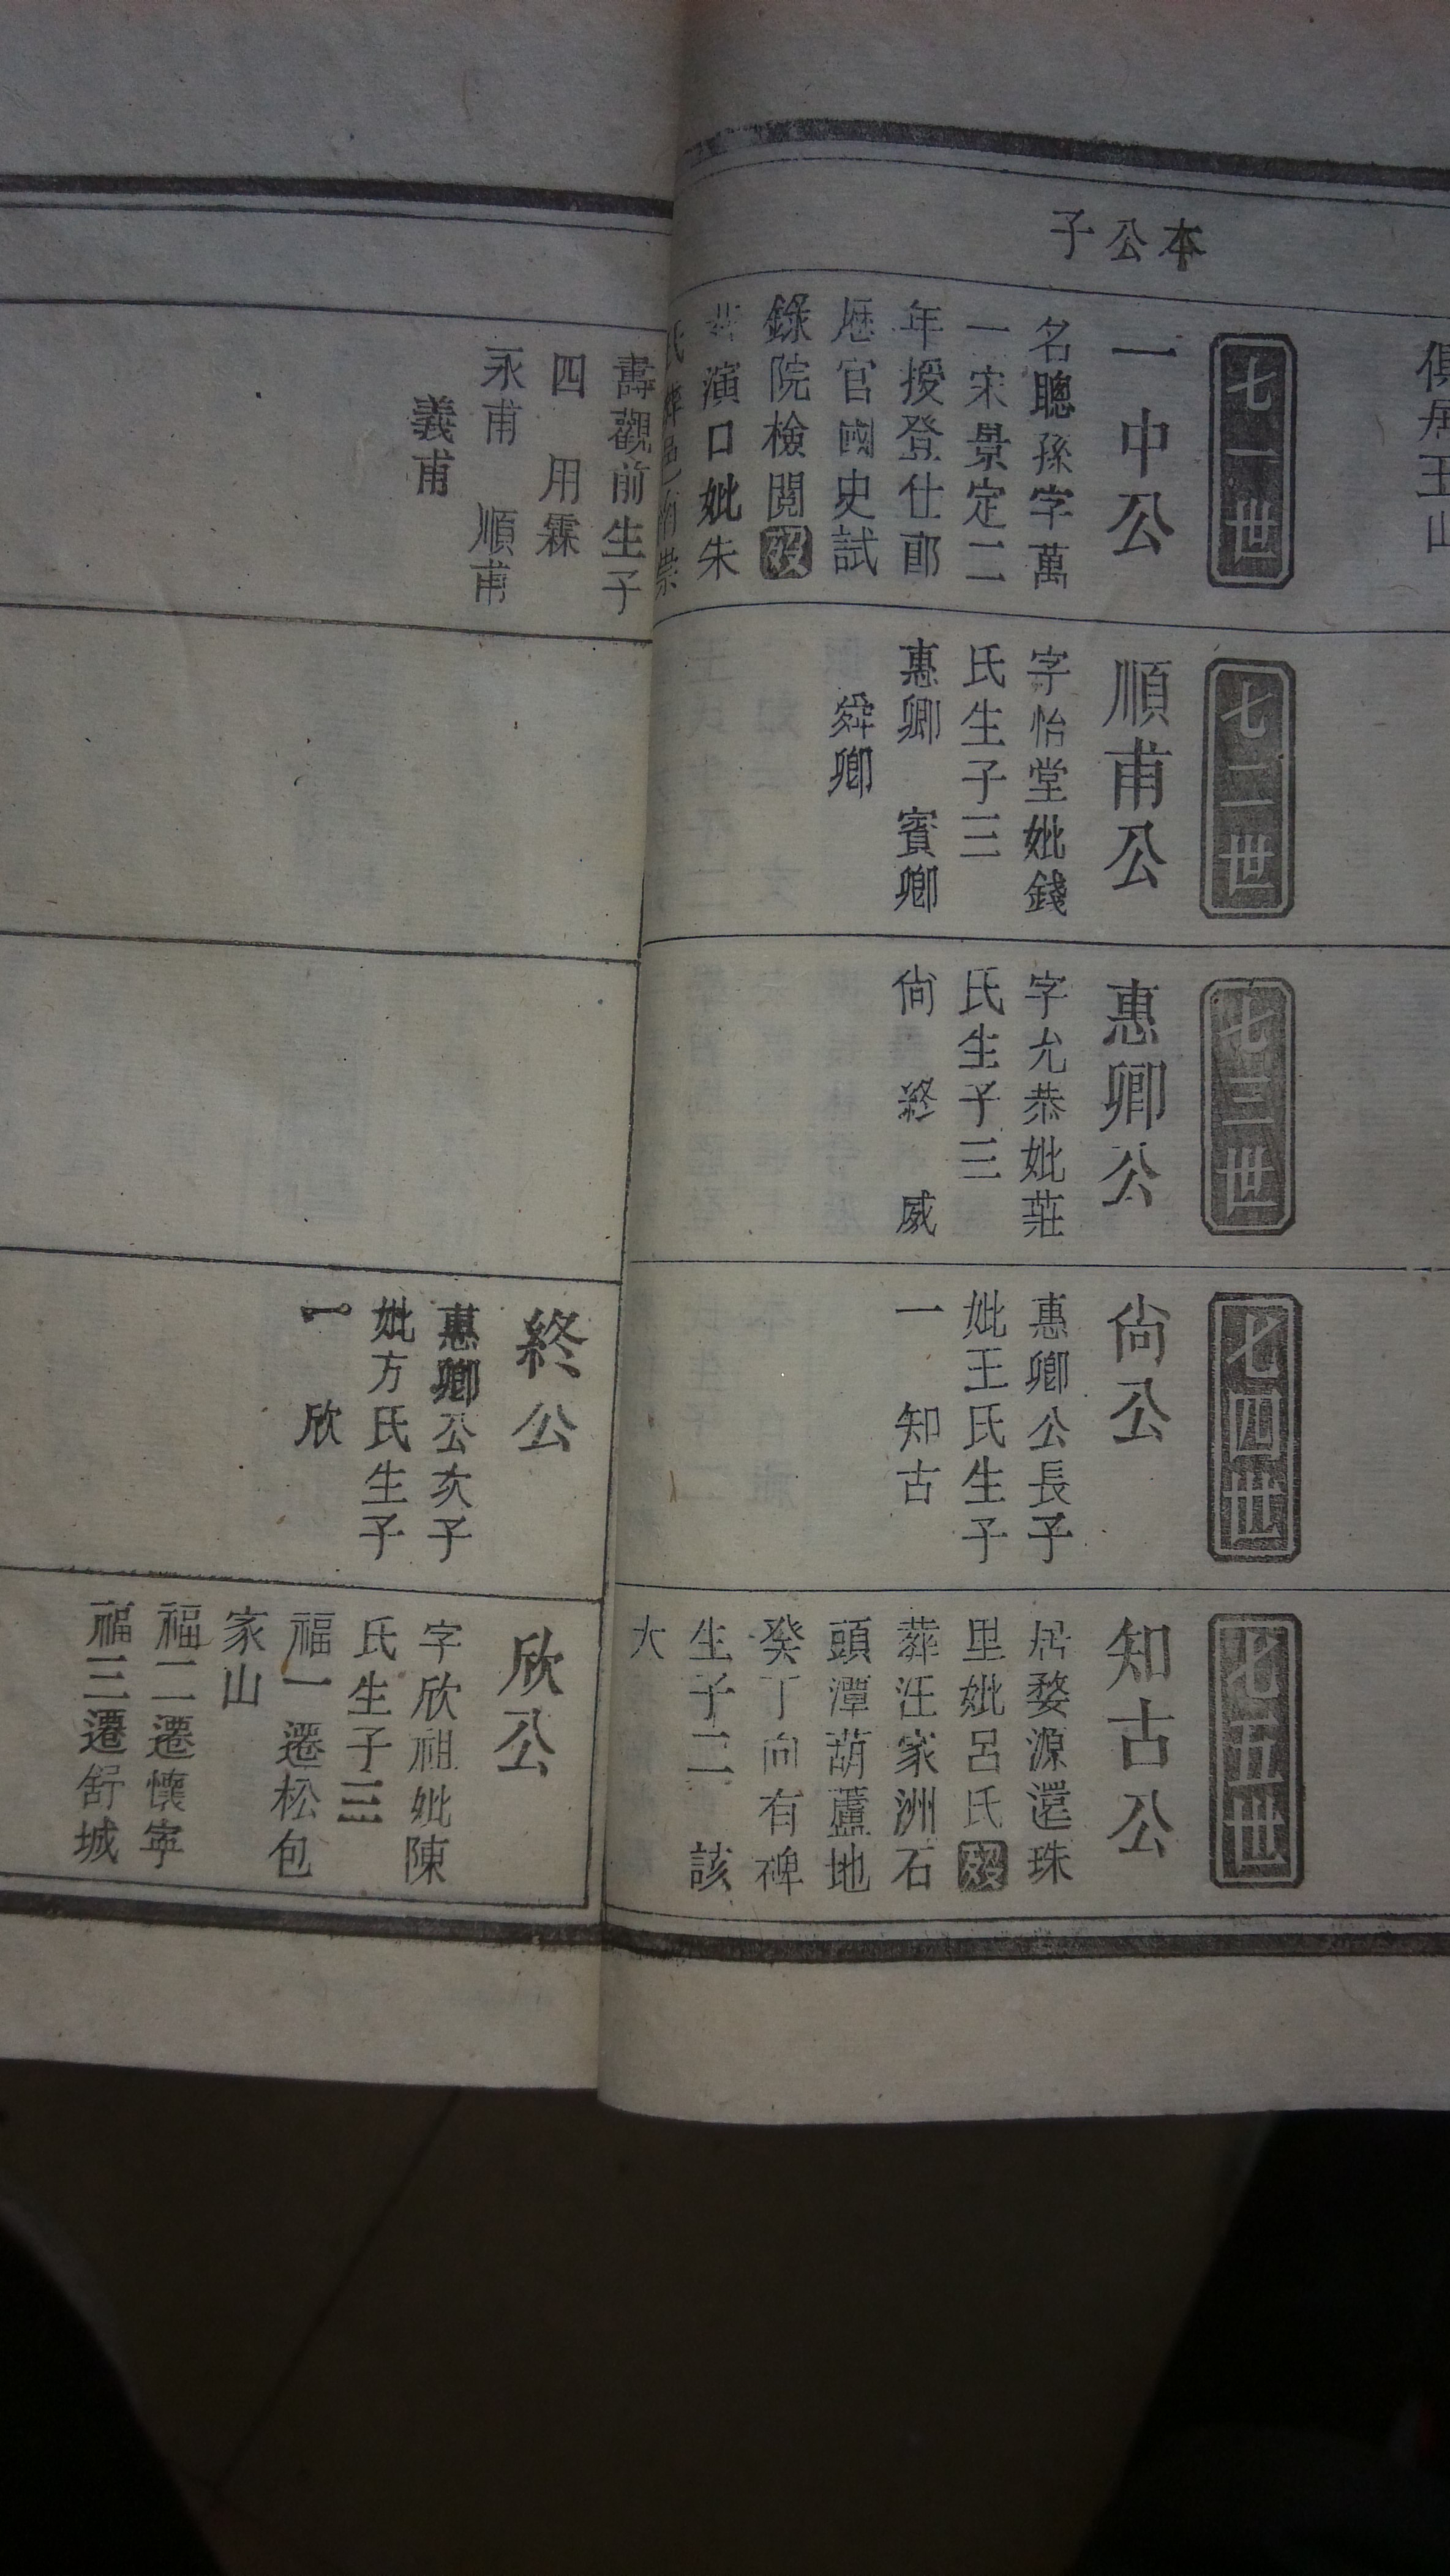 本公子
七一世
一中公
名聰孫字萬
一宋景定二
年授登仕郎
歴官國史試
錄院檢閱歿
葬演口妣朱
壽觀前生子
四 用霖
永甫 順甫
義甫
七二世
順甫公
字怡堂妣錢
氏生子三
惠卿 賓卿
舜卿
七三世
惠卿公
字允恭妣莊
氏生子三
尙 終 威
七四世
尙公
惠卿公長子
妣王氏生子
一 知古
終公
惠卿公次子
妣方氏生子
一 欣
七五世
知古公
居婺源還珠
里妣呂氏歿
葬汪家洲石
頭潭葫蘆地
癸丁向有碑
生子二 該
大
欣公
字欣祖妣陳
氏生子三
福一遷松包
家山
福二遷懷寧
福三遷舒城